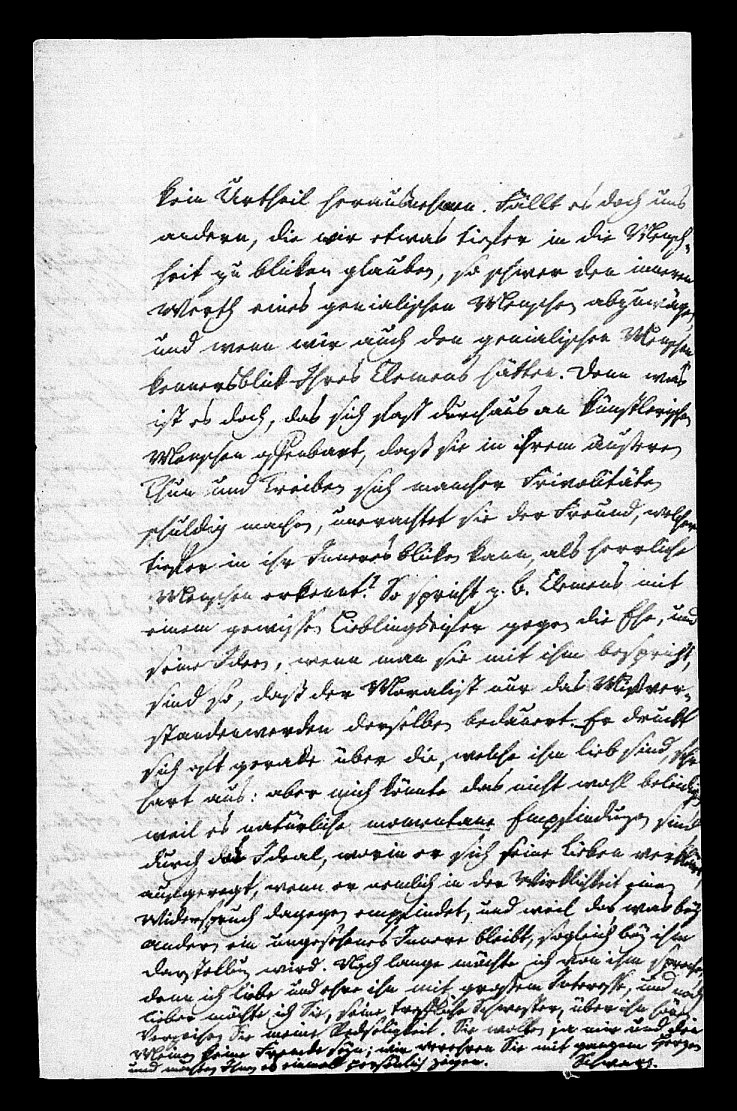 kein Urtheil herausnehmen. Fällt es doch uns
andern, die wir etwas tiefer in die Mensch-
heit zu blicken glauben, so schwer den inneren
Werth eines genialischen Menschen abzuwägen,
und wenn wir auch den genialischen Menschen
kennersblick Ihres Clemens hätten. Denn was
ist es doch, das sich fast durchaus an künstlerischen
Menschen offenbart, daß sie in ihrem äußeren
Thun und Treiben sich mancher Frivolitäten
schuldig machen, unerachtet sie der Freund, welcher
tiefer in ihr Inneres blicken kann, als herrliche
Menschen erkennt? So spricht z. b. Clemens mit
einem gewissen Lieblingseifer gegen die Ehe, und
seine Ideen, wenn man sie mit ihm bespricht,
sind so, daß der Moralist nur das Misver-
standenwerden derselben bedauert. Er druckt
sich oft gerade über die, welche ihm lieb sind, sehr
hart aus: aber mich könnte das nicht wohl beleidigen
weil es natürliche momentane Empfindungen sind
durch das Ideal, worin er sich seine Lieben verklärt,
aufgeregt, wenn er nemlich in der Wirklichkeit einen
Widerspruch dagegen empfindet, und weil das was bey
andern ein ungesehenes Innere bleibt, sogleich bey ihm
Darstellung wird. Noch lange möchte ich von ihm sprechen,
denn ich liebe und ehre ihn mit großem Interesse, und noch
lieber möchte ich Sie, seine treffliche Schwester, über ihn hören.
Verzeihen Sie meine Redseligkeit. Sie wollen ja mir und den
Meinen keine Fremde seyn; wir verehren Sie mit ganzem Herzen
und möchten Ihnen es einmal persönlich zeigen. Schwarz.